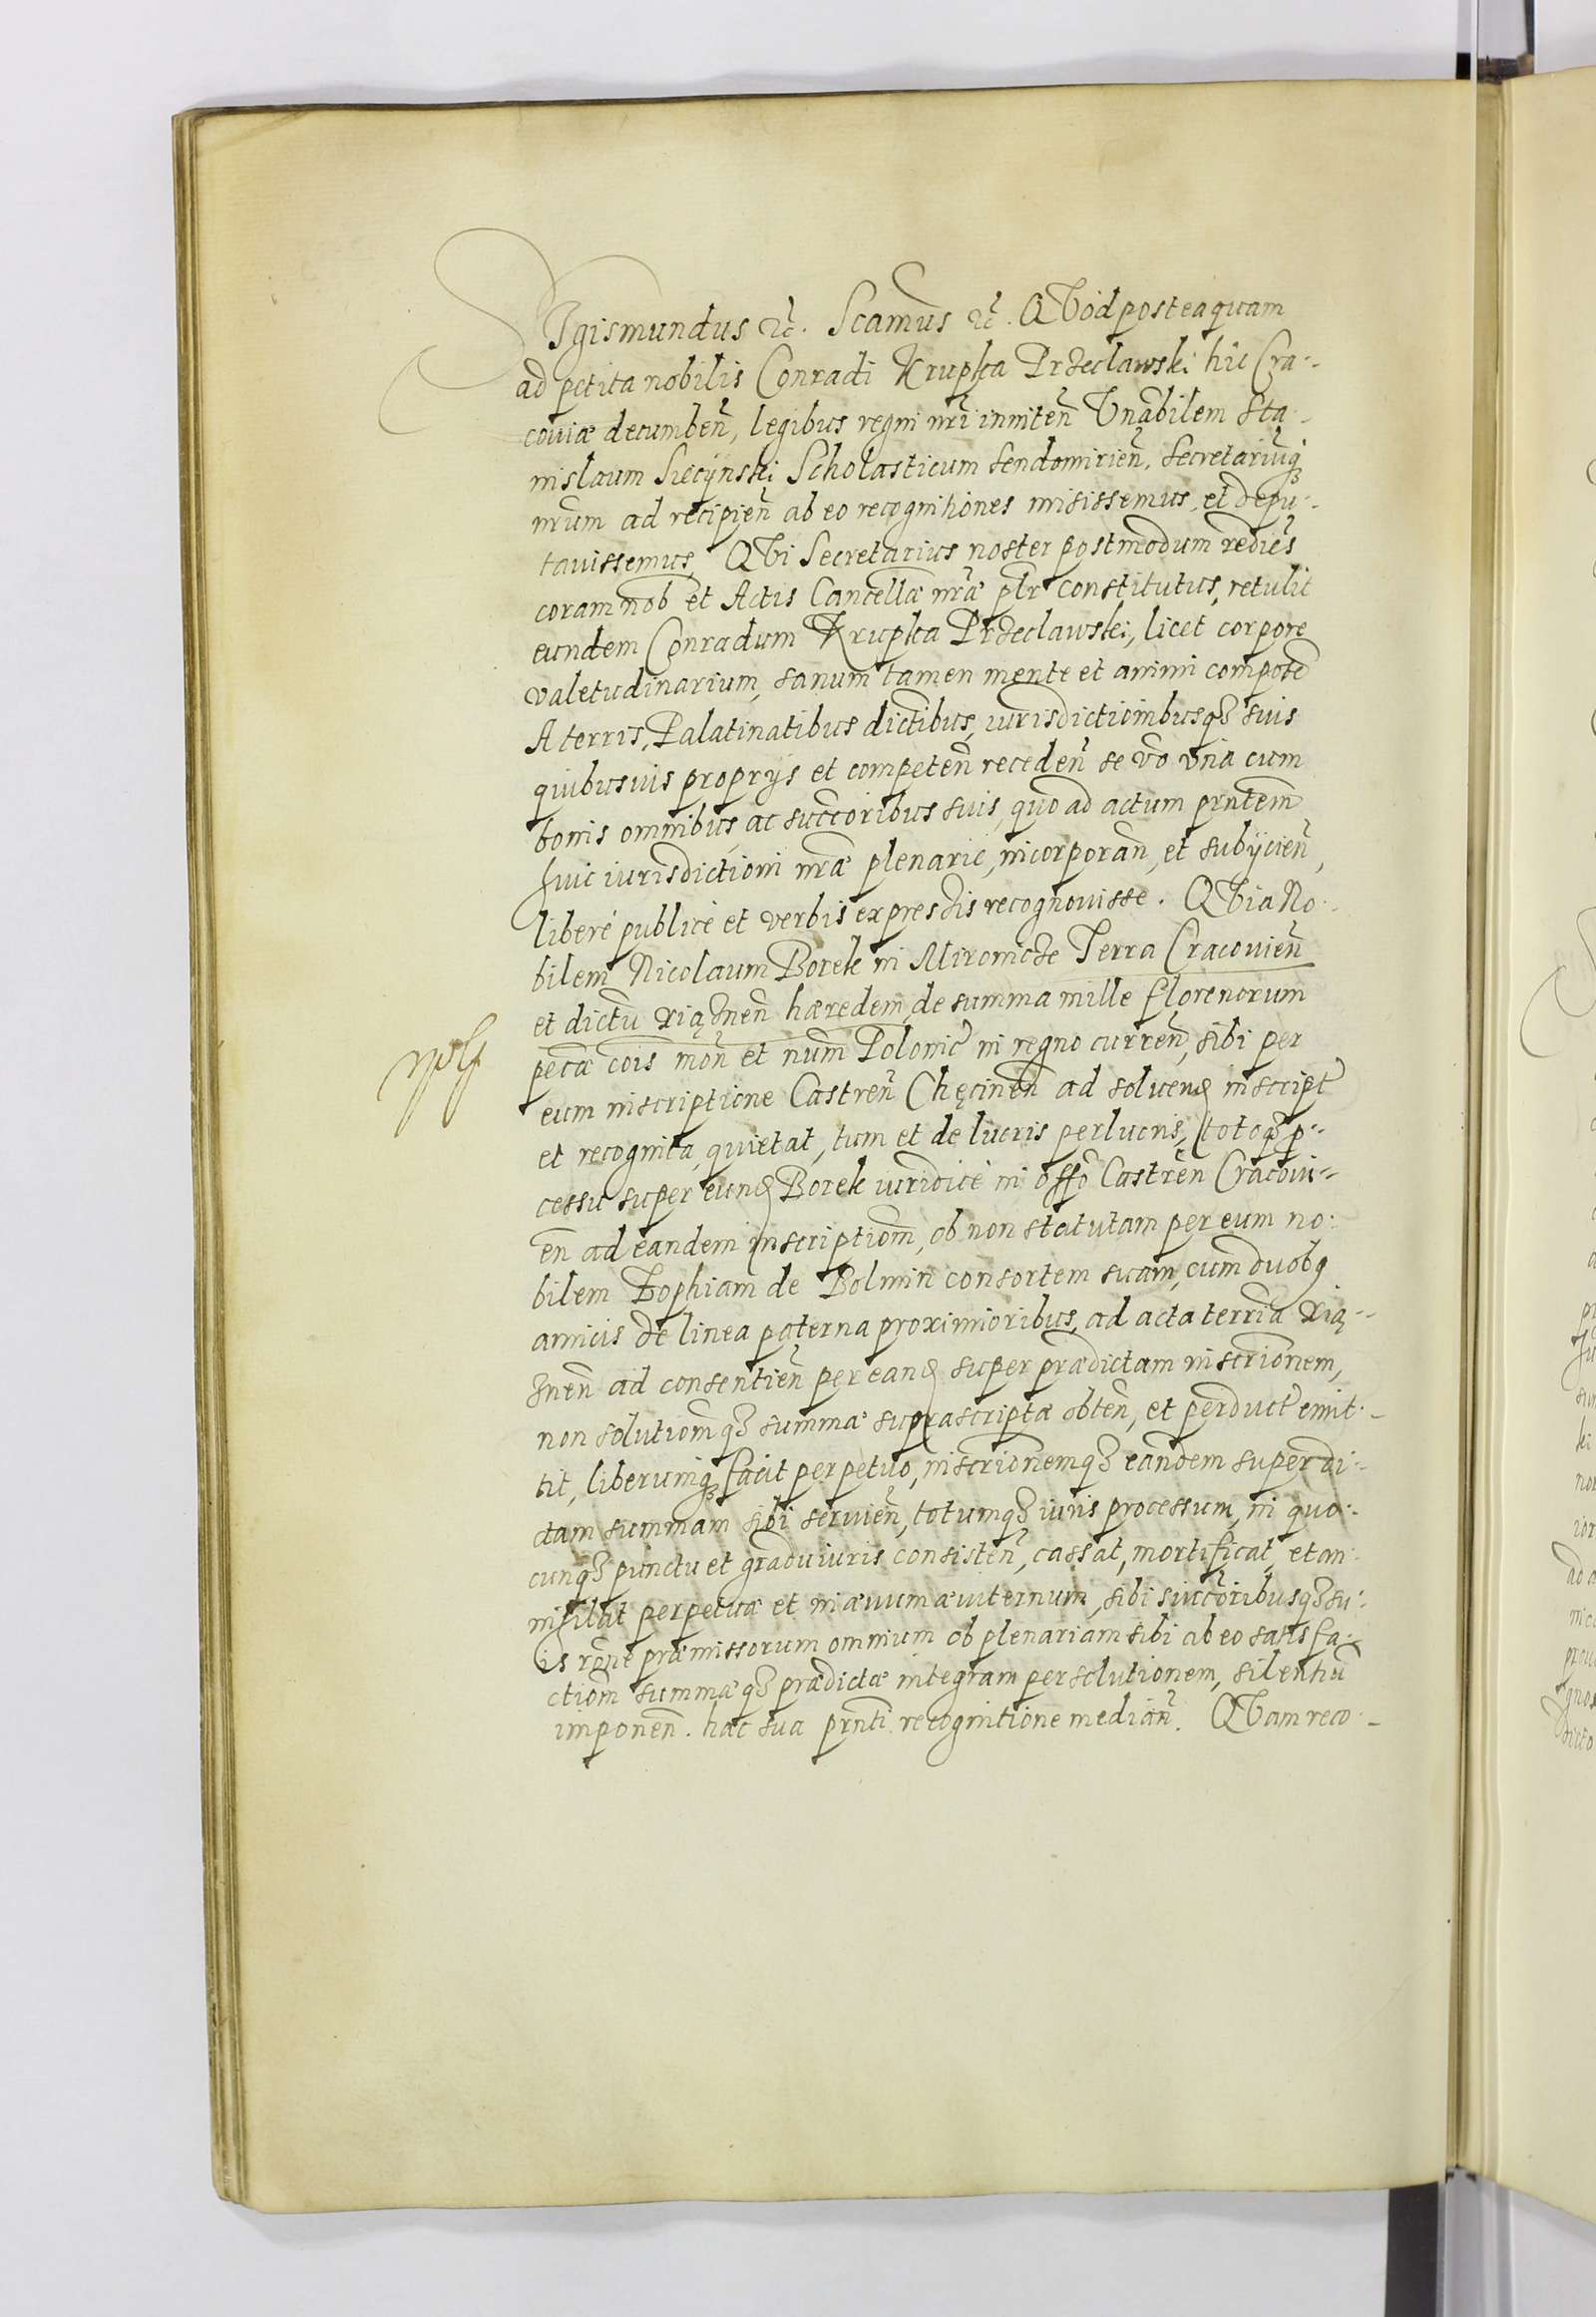 SIgismundus etc. Scamus etc. QVod posteaquam
ad petita nobilis Conradi Krupka Przeclawski hic Cra-
coviæ decumben, legibus regni nri inniten Vnabilem Sta-
nislaum Siecÿnski Scholasticum Sendomirien, Secretariuq
nrum ad recipien ab eo recognitiones misissemus, et depu-
tavissemus, QVi Secretarius noster postmodum rediens
coram nob et Actis Cancellæ nræ plr constitutus, retulit
eundem Conradum Krupka Przeclawski, licet corpore
valetudinarium, sanum tamen mente et animi compote
A terris, Palatinatibus dictibus, iurisdictionibusq suis
quibusuis proprijs et competen receden se vo vna cum
bonis omnibus, ac succoribus suis, quo ad actum prntem
huic iurisdictioni nræ plenarie, incorporan, et subijcien,
liberè publicè et verbis expressis recognouisse. QVia No-
bilem Nicolaum Borek in Mironicze Terra Cracouien
et dictu Xiąznen hæredem, de summa mille florenorum
pecæ cois mon et num Polonic in regno curren, sibi per
eum inscriptione Castren Chęcinen ad soluend inscript
et recognita, quietat, tum et de lucris perlucris, totoq p-
cessu super eund Borek iuridicè in offo Castren Cracoui-
en ad eandem inscriptiom, ob non statutam per eum no-
bilem Zophiam de Bolmin consortem suam, cum duobq
amicis de linea paterna proximioribus, ad acta terria Xią-
znen ad consentien per eand super prædictam inscrionem,
non solutiomq summæ suprascriptæ obten, et perduct emit-
tit, liberumq facit perpetuo, inscrionemq eandem super di-
ctam summam sibi seruien, totumq iuris processum, in quo-
cunq punctu et gradu iuris consisten, cassat, mortificat, et an-
nihilat perpetuæ et in æuum æuiternum, sibi succoribusq su-
is rone præmissorum omnium ob plenariam sibi ab eo satisfa-
ctiom summæq prædictæ integram persolutionem, silentiu
imponen. hac sua prnti recognitione median. QVam reco-